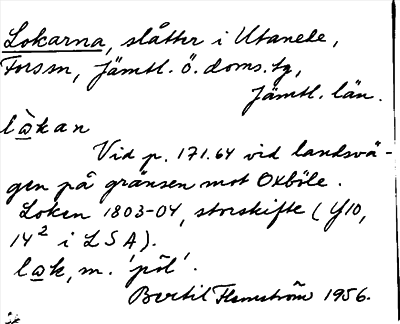 Lokarna, slåtter i Utanede,
Forsm, Jämtl. ö. doms. tg,
Jämtl. län.
lò̲kan
Vid p. 171.64 vid landsvä-
gen på gränsen mot Oxböle.
Loken 1803-04, storskifte (Y10,
14² i LSA).
lo̲k, m. 'pöl'.
Bertil Flemström 1956.